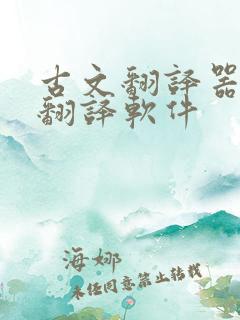 古文翻译器
翻译软件
海娜
未经同意禁止转载